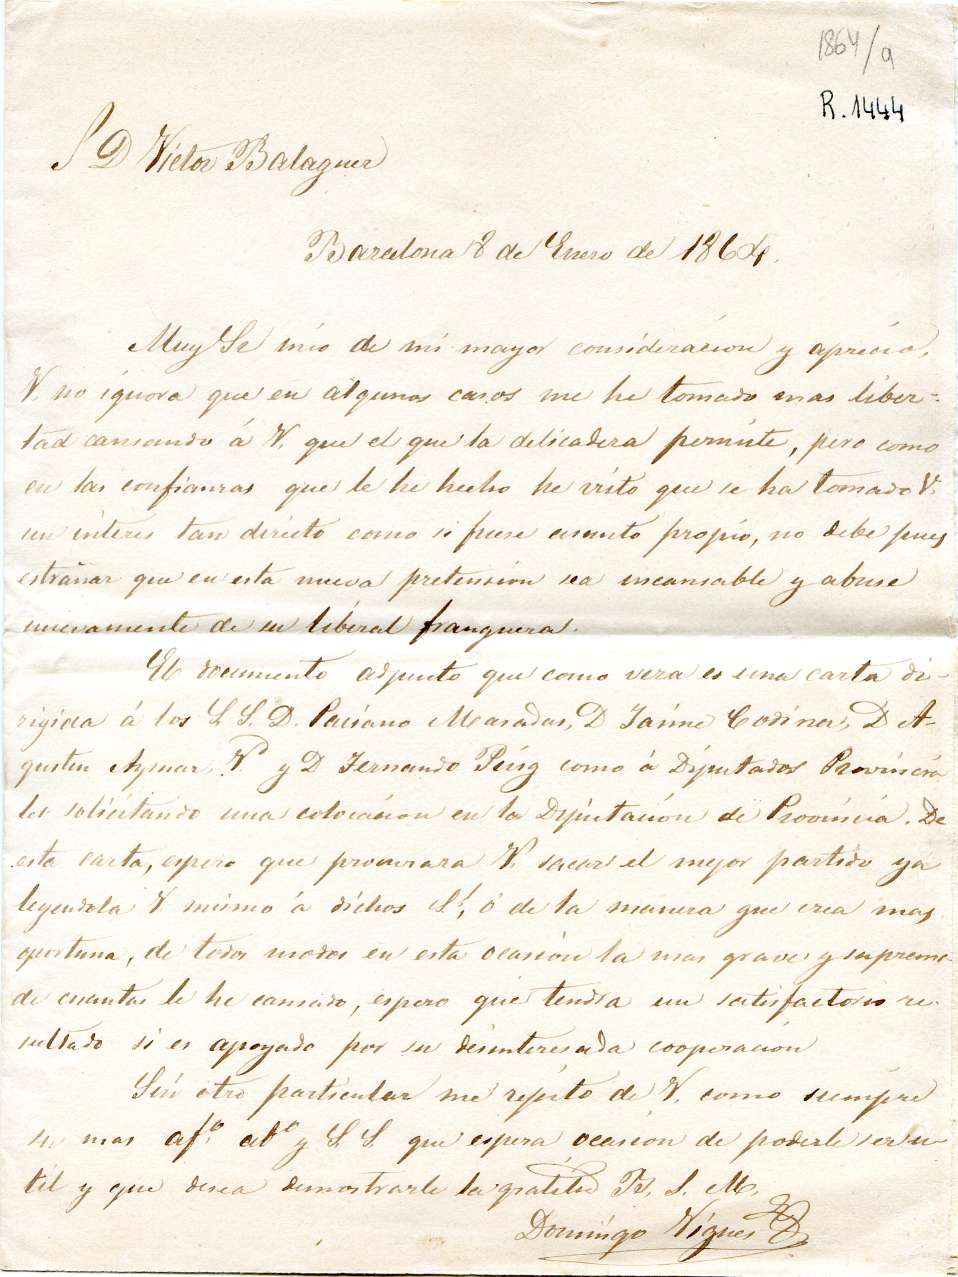 1864/9
R. 1444
S D Victor Balaguer
Barcelona 8 de Enero de 1864.
Muy Sr mio de mi mayor consideracion y aprecio,
V. no ignora que en algunos casos me he tomado mas liber-
tad cansando á V. que el que la delicadera permite, pero como
en las confianzas que le he hecho he visto que se ha tomado V.
un interes tan directo como si fuese asunto propio, no debe pues
estrañar que en esta nueva pretension sea incansable y abuse
nuevamente de su liberal franquera.
El documento adjunto que como vera es una carta di-
rigida á los S. S. D. Paciano Masadas, D Jaime Codina, D A-
gustin Aymar, V. y D Fernando Puig como á Diputados Provincia
les solicitando una colocacion en la Diputacion de Provincia. De
esta carta, espero que procurara V. sacar el mejor partido ya
leyendola V. mismo á dichos Srs, ó de la manera que crea mas
oportuna, de todos modos en esta ocasion la mas grave y suprema
de cuantas le he cansado, espero que tendra un satisfactorio re-
sultado si es apoyado por su desinteresada cooperacion
Sin otro particular me repito de V. como siempre
su mas afo. ato y S. S. que espera ocasion de poderle ser u-
til y que desea demostrarle la gratitud B. S. M.
Domingo Vigues